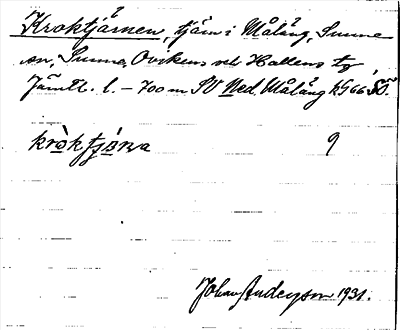 Kroktjärnen, tjärn i Målång, Sunne
sn, Sunne, Ovikens och Hallens tg,
Jämtl. l. – 700 m SV Ned. Målång kG66 SO.
kròktjɑ̈ṇa 9
Johan Anderson 1931.